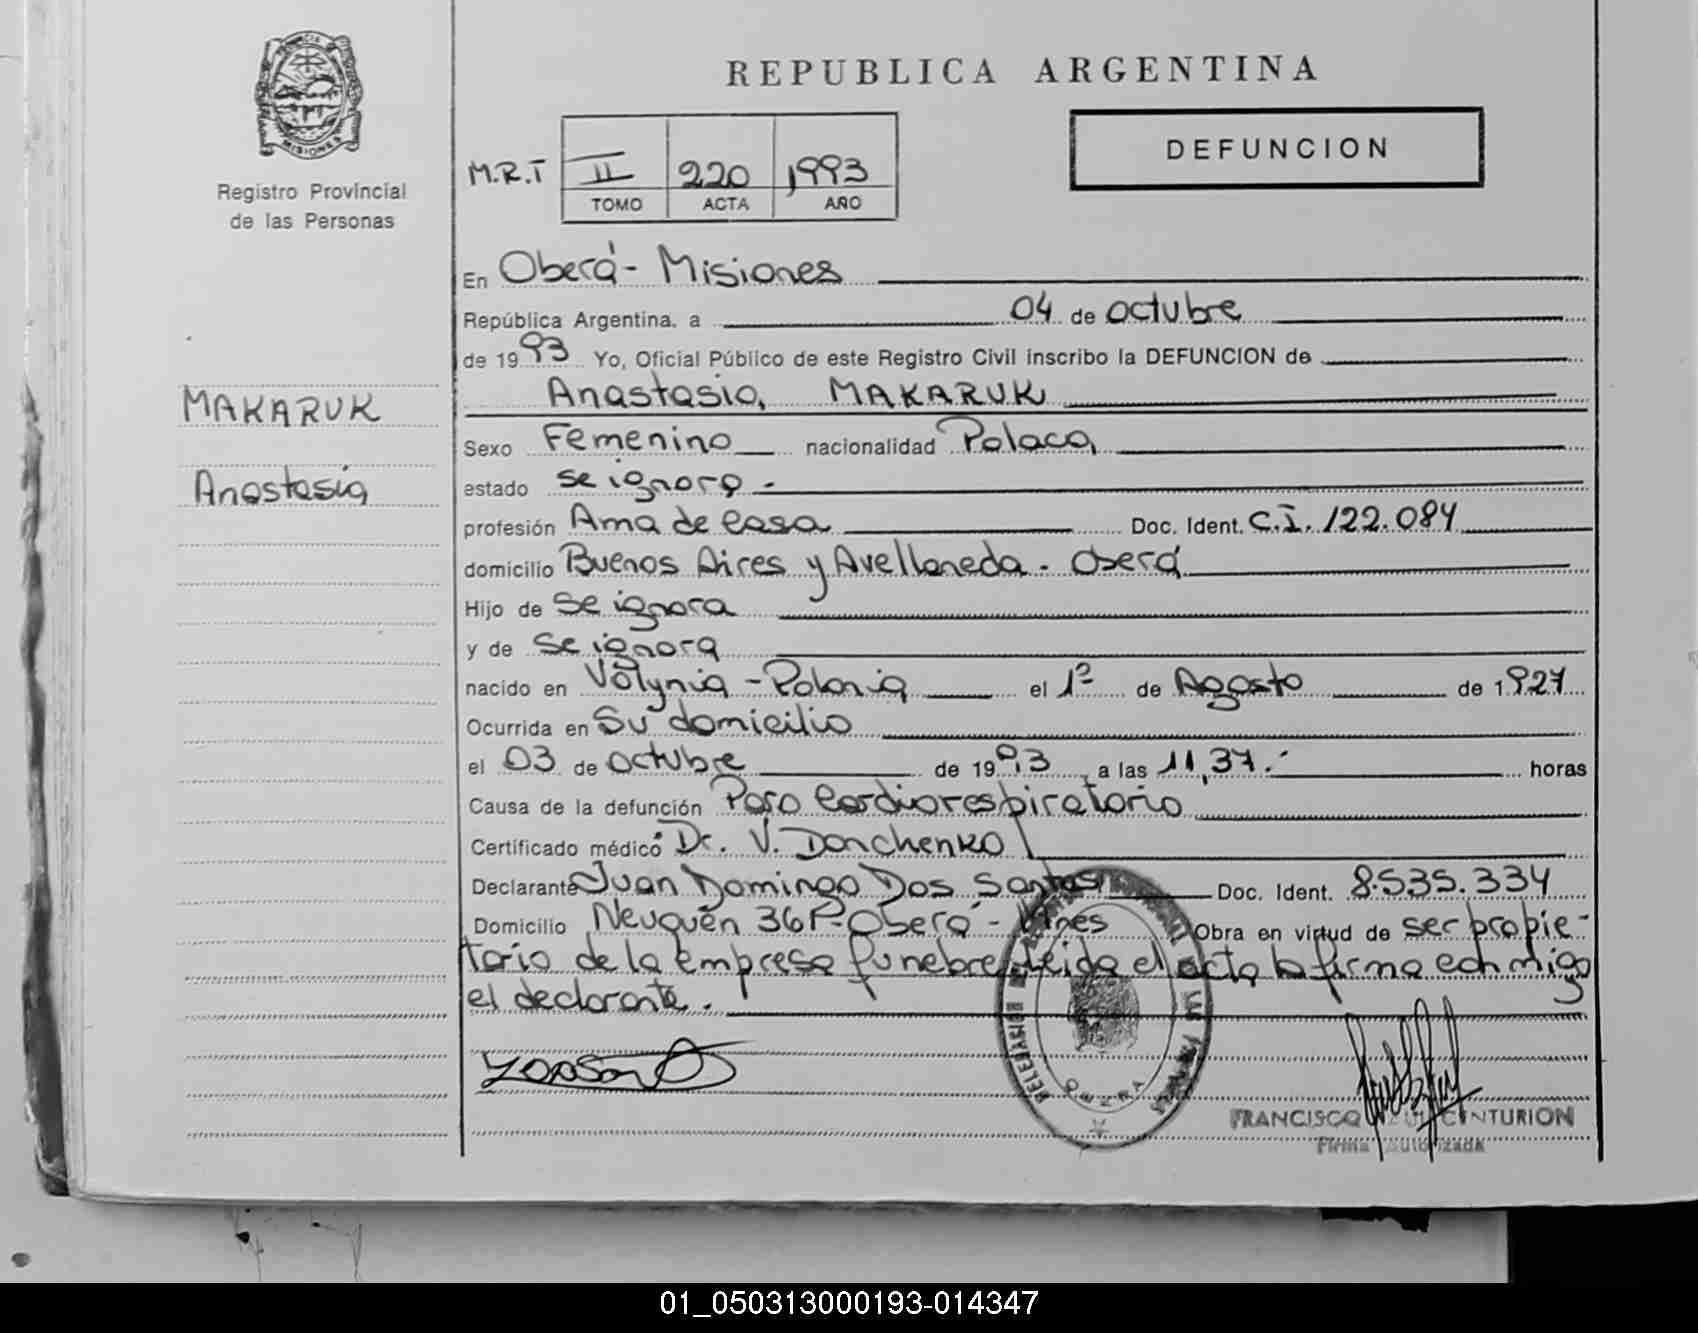 REPUBLICA ARGENTINA
DEFUNCION
PROVINCIA D
MISIONES
Registro Provincial
de las Personas
M.R.T II 220 1993
TOMO ACTA AÑO
En Oberá - Misiones
República Argentina, a 04 de octubre
de 1993 Yo, Oficial Público de este Registro Civil inscribo la DEFUNCION de
Anastasia, MAKARUK
MAKARUK
Anastasia
Sexo Femenino nacionalidad Polaca
estado se ignora.-
profesión Ama de Casa Doc. Ident. C.I. 122.084
domicilio Buenos Aires y Avellaneda - Oberá
Hijo de se ignora
y de se ignora
nacido en Volynia - Polonia el 1º de Agosto de 1927
Ocurrida en Su domicilio
el 03 de octubre de 1993 a las 11,37.- horas
Causa de la defunción Paro Cardiorespiratorio
Certificado médico Dr. V. Donchenko
Declarante Juan Domingo Dos Santos Doc. Ident. 8.535.334
Domicilio Neuquén Oberá - Mnes Obra en virtud de ser propie-
tario de la empresa funebre leida el acta la firma conmigo
el declarante.
OBERA
FRANCISCO CENTURION
Firma Autorizada
01_050313000193-014347